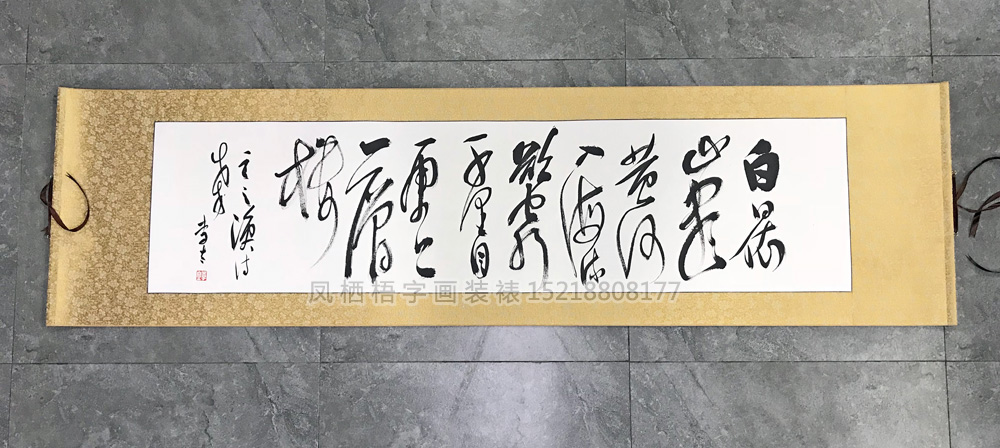 白日依
山盡
黄河
入海流
欲窮
千里目
更上
一層
樓
王之渙詩
凤栖梧字画装裱 15218808177